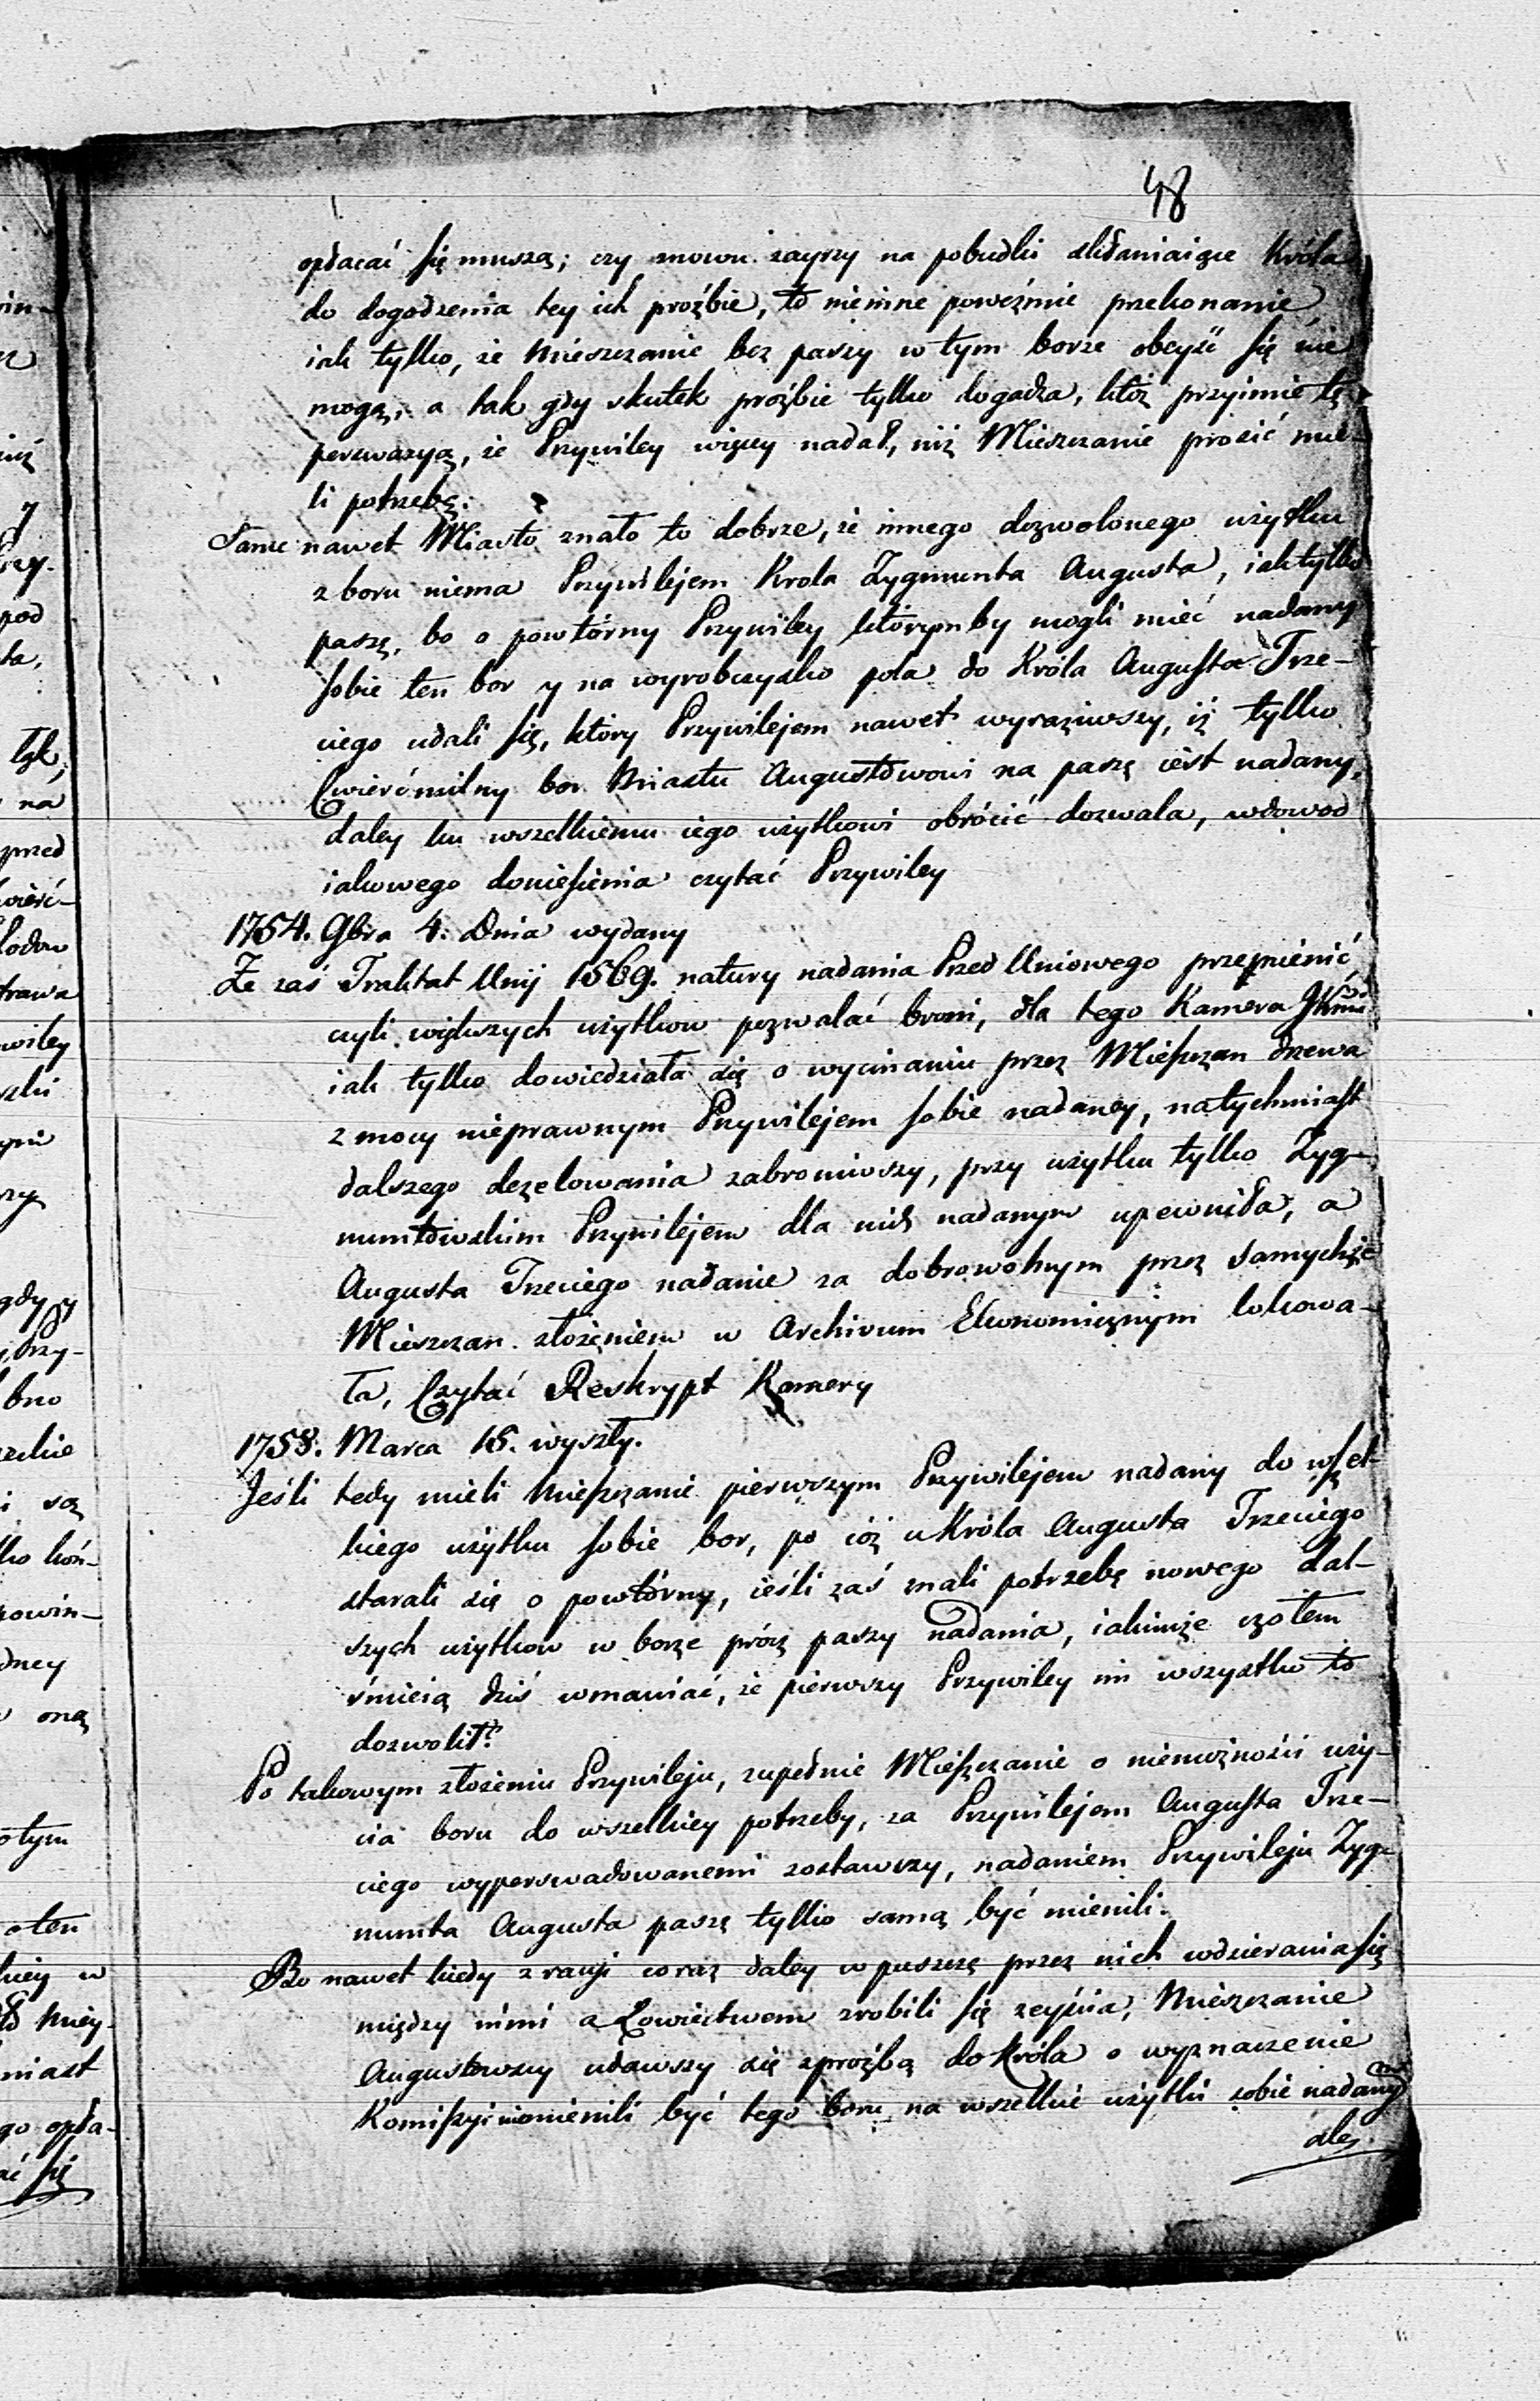 48
opłacać się muszą; czy znowu zayrzy na pobudki skłaniaiące Króla
do dogodzenia tey ich proźbie, to nieinne poweźmie przekonanie
iak tylko, że Mieszczanie bez paszy w tym borze obeyść się nie
mogą; a tak gdy skutek proźbie tylko dogadza, któż przyimie tę
perswazyą, że Przywiley więcey nadał, niż Mieszczanie prosić mie-
li potrzebę:
Same nawet Miasto znało to dobrze, że innego dozwolonego użytku
z boru niema Przywilejem Krola Zygmunta Augusta, iak tylko
paszę, bo o powtórny Przywiley którymby mogli mieć nadany
sobie ten bor y na wyrobczysko pola do Króla Augusta Trze-
ciego udali się, który Przywilejem nawet wyraziwszy, iż tylko
Cwierćmilny bor Miastu Augustowowi na paszę iest nadany,
daley ku wszelkiemu iego użytkowi obrócić dozwala, wdowod
iakowego doniesienia czytać Przywiley
1754. 9bra 4. Dnia wydany
Że zaś Traktat Unij 1569. natury nadania Przed Uniowego przemienić
czyli większych użytkow pozwalać broni, dla tego Kamera JKmci
iak tylko dowiedziała się o wycinaniu przez Mieszczan drzewa
z mocy nieprawnym Przywilejem sobie nadaney, natychmiast
dalszego dezelowania zabroniwszy, przy użytku tylko Zyg-
muntowskim Przywilejem dla nich nadanym upewniła, a
Augusta Trzeciego nadanie za dobrowolnym przez samychże
Mieszczan złożeniem w Archivum Ekonomicznym lokowa-
ła, Czytać Reskrypt Kamery
1758. Marca 15. wyszły.
Jeśli tedy mieli Mieszczanie pierwszym Przywilejem nadany do wszel-
kiego użytku sobie bor, po cóż u Króla Augusta Trzeciego
starali się o powtórny, ieśli zaś znali potrzebę nowego dal-
szych użytkow w borze prócz paszy nadania, iakimże czołem
śmieią dziś wmawiać, że pierwszy Przywiley im wszystko to
dozwolił?
Po takowym złożeniu Przywileju, zupełnie Mieszczanie o niemożności uży-
cia boru do wszelkiey potrzeby, za Przywilejem Augusta Trze-
ciego wyperswadowanemi zostawszy, nadaniem Przywileju Zyg-
munta Augusta paszę tylko samą być mienili.
Bo nawet kiedy z racji coraz daley w puszczę przez nich wdzierania się
między nimi a Łowiectwem zrobili się zeyścia, Mieszczanie
Augustowscy udawszy się z proźbą do Króla o wyznaczenie
Komissyi niemienili być tego boru na wszelkie użytki sobie nadany
ale